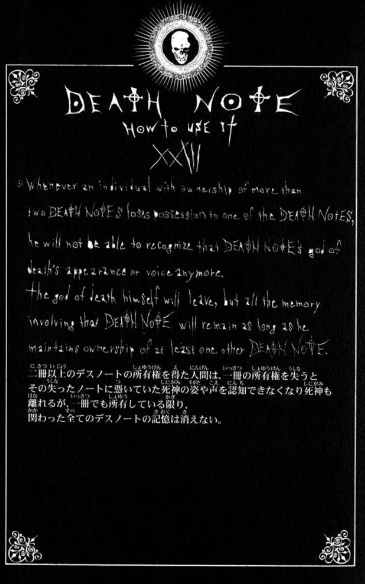 DEATH NOTE
HOW TO USE IT
XXII
Whenever an individual with ownership of more than
two DEATH NOTES loses possession to one of the DEATH NOTES,
he will not be able to recognize that DEATH NOTE's god of
death's appearance or voice anymore.
The god of death himself will leave, but all the memory
involving that DEATH NOTE will remain as long as he
maintains ownership of at least one other DEATH NOTE.
二冊以上のデスノートの所有権を得た人間は、一冊の所有権を失うと
その失ったノートに憑いていた死神の姿や声を認知できなくなり死神も
離れるが、一冊でも所有している限り、
関わった全てのデスノートの記憶は消えない。